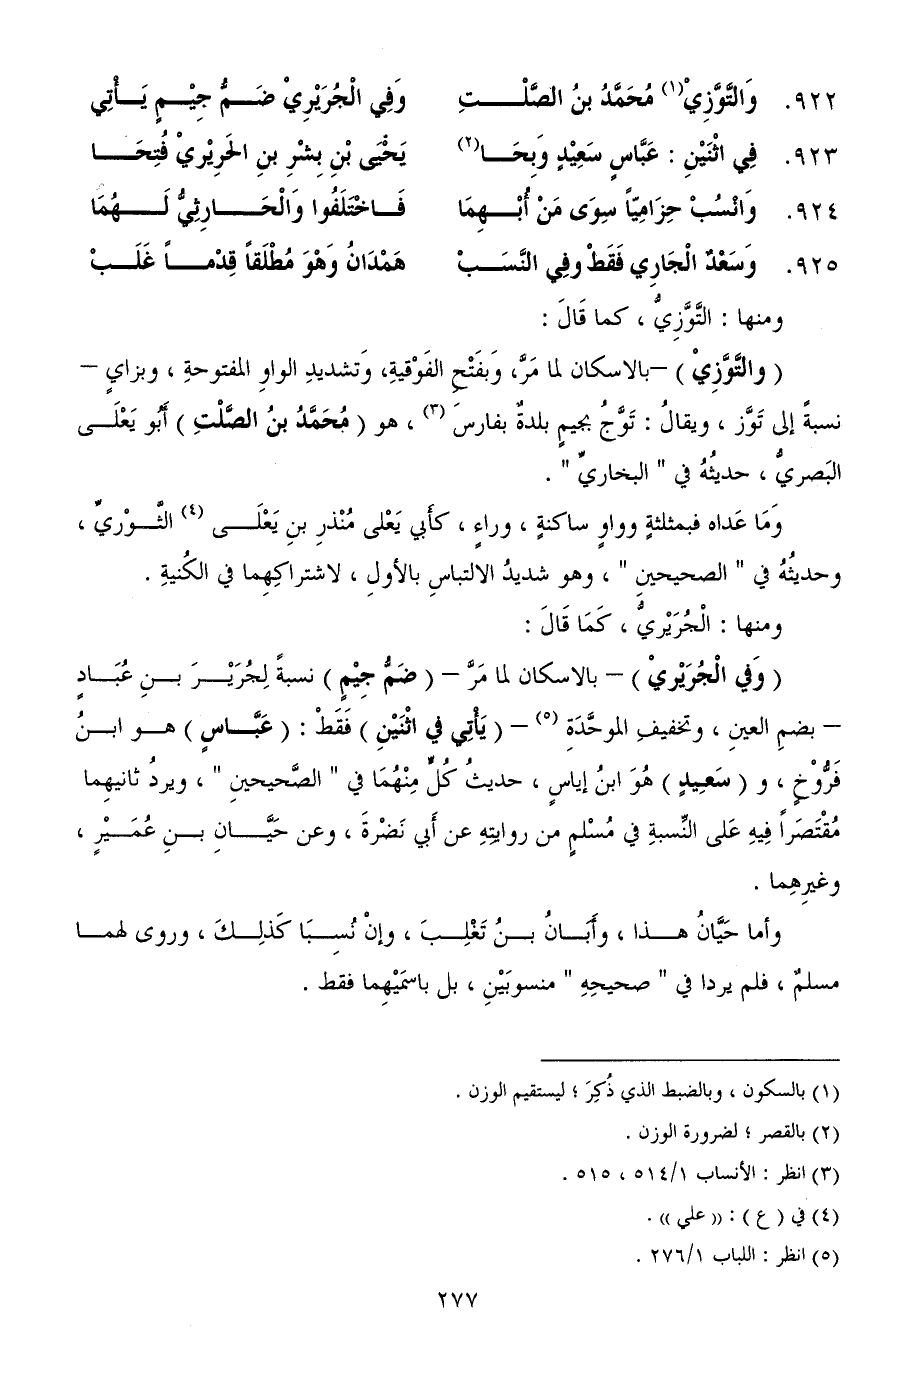 ٩٢٢. وَالتَّوَّزِيْ(١) مُحَمَّدُ بنُ الصَّلْتِ وَفِي الْجُرَيْرِيْ ضَمُّ جِيْمٍ يَأْتِي
٩٢٣. فِي اثْنَيْنِ : عَبَّاسٍ سَعِيْدٍ وَبِحَا(٢) يَحْيَى بْنِ بِشْرِ بنِ الْحَرِيْرِيْ فُتِحَا
٩٢٤. وَانْسُبْ حِزَامِيّاً سِوَى مَنْ أُبْهِمَا فَاخْتَلَفُوا وَالْحَارِثِيُّ لَهُمَا
٩٢٥. وَسَعْدٌ الْجَارِي فَقَطْ وفِي النَّسَبْ هَمْدَانُ وَهْوَ مُطْلَقاً قِدْماً غَلَبْ
ومنها : التَّوَّزِيُّ ، كما قَالَ :
( والتَّوَّزِيْ ) –بالاسكان لما مَرَّ، وَبفَتْحِ الفَوْقيةِ، وَتشديدِ الواوِ المفتوحةِ ، وبزاي –
نسبةً إلى تَوَّز ، ويقالُ : تَوَّجُ بجيمٍ بلدةٌ بفارسَ (٣) ، هو ( مُحَمَّدُ بنُ الصَّلْتِ ) أَبُو يَعْلَى
البَصريُّ ، حديثُهُ في " البخاريِّ " .
وَمَا عَداه فبمثلثةٍ وواوٍ ساكنةٍ ، وراءٍ ، كأبي يَعْلى مُنْذرِ بنِ يَعْلَى (٤) الثَّوْريِّ ،
وحديثُهُ في " الصحيحينِ " ، وهو شديدُ الالتباسِ بالأولِ ، لاشتراكِهما في الكُنيةِ .
ومنها : الْجُرَيْرِيُّ ، كَمَا قَالَ :
( وَفِي الْجُرَيْرِيْ ) – بالاسكان لما مَرَّ – ( ضَمُّ جِيْمٍ ) نسبةً لِجُرَيْرَ بنِ عُبَادٍ
– بضمِ العينِ ، وتخفيفِ الموحَّدَة (٥) – ( يَأْتِي فِي اثْنَيْنِ ) فَقَطْ : ( عَبَّاسٍ ) هو ابنُ
فَرُّوْخٍ ، و ( سَعِيدٍ ) هُوَ ابنُ إياسٍ ، حديثُ كُلٍّ مِنْهُمَا في " الصَّحيحينِ " ، ويردُ ثانيهما
مُقْتَصَراً فيهِ عَلى النِّسبةِ في مُسْلمٍ من روايتِهِ عن أبي نَضْرةَ ، وعن حَيَّانِ بنِ عُمَيْرٍ ،
وغيرِهِما .
وأما حَيَّانُ هذا ، وأَبَانُ بنُ تَغْلِبَ ، وإنْ نُسِبَا كَذلِكَ ، وروى لهما
مسلمٌ ، فلم يردا في " صحيحِهِ " منسوبَيْنِ ، بل باسمَيْهِما فقط .
(١) بالسكون ، وبالضبط الذي ذُكِرَ ؛ ليستقيم الوزن .
(٢) بالقصر ؛ لضرورة الوزن .
(٣) انظر : الأنساب ٥١٤/١ ، ٥١٥ .
(٤) في ( ع ) : (( علي )) .
(٥) انظر : اللباب ٢٧٦/١ .
٢٧٧